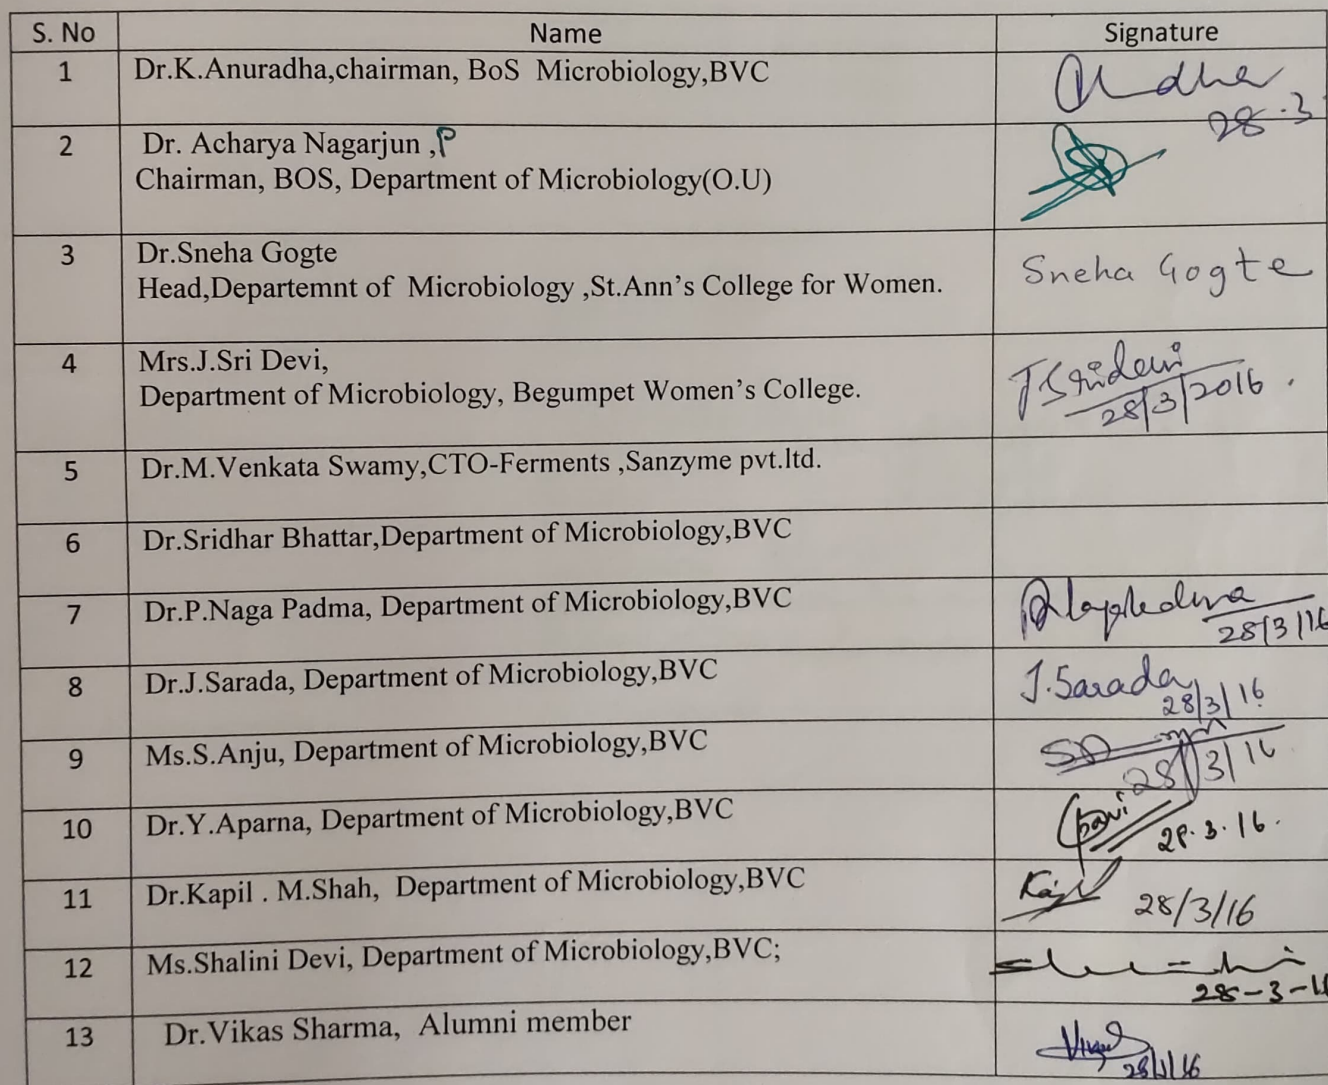 S. No Name Signature
1 Dr.K.Anuradha,chairman, BoS Microbiology,BVC
28.3
2 Dr. Acharya Nagarjun ,P
Chairman, BOS, Department of Microbiology(O.U)
3 Dr.Sneha Gogte
Head,Departemnt of Microbiology ,St.Ann's College for Women.
Sneha Gogte
4 Mrs.J.Sri Devi,
Department of Microbiology, Begumpet Women's College.
J Sridevi
28/3/2016.
5 Dr.M.Venkata Swamy,CTO-Ferments ,Sanzyme pvt.ltd.
6 Dr.Sridhar Bhattar,Department of Microbiology,BVC
7 Dr.P.Naga Padma, Department of Microbiology,BVC
28/3/16
8 Dr.J.Sarada, Department of Microbiology,BVC J.Sarada
28/3/16
9 Ms.S.Anju, Department of Microbiology,BVC
28/3/16
10 Dr.Y.Aparna, Department of Microbiology,BVC
28.3.16.
11 Dr.Kapil . M.Shah, Department of Microbiology,BVC
28/3/16
12 Ms.Shalini Devi, Department of Microbiology,BVC;
28-3-16
13 Dr.Vikas Sharma, Alumni member